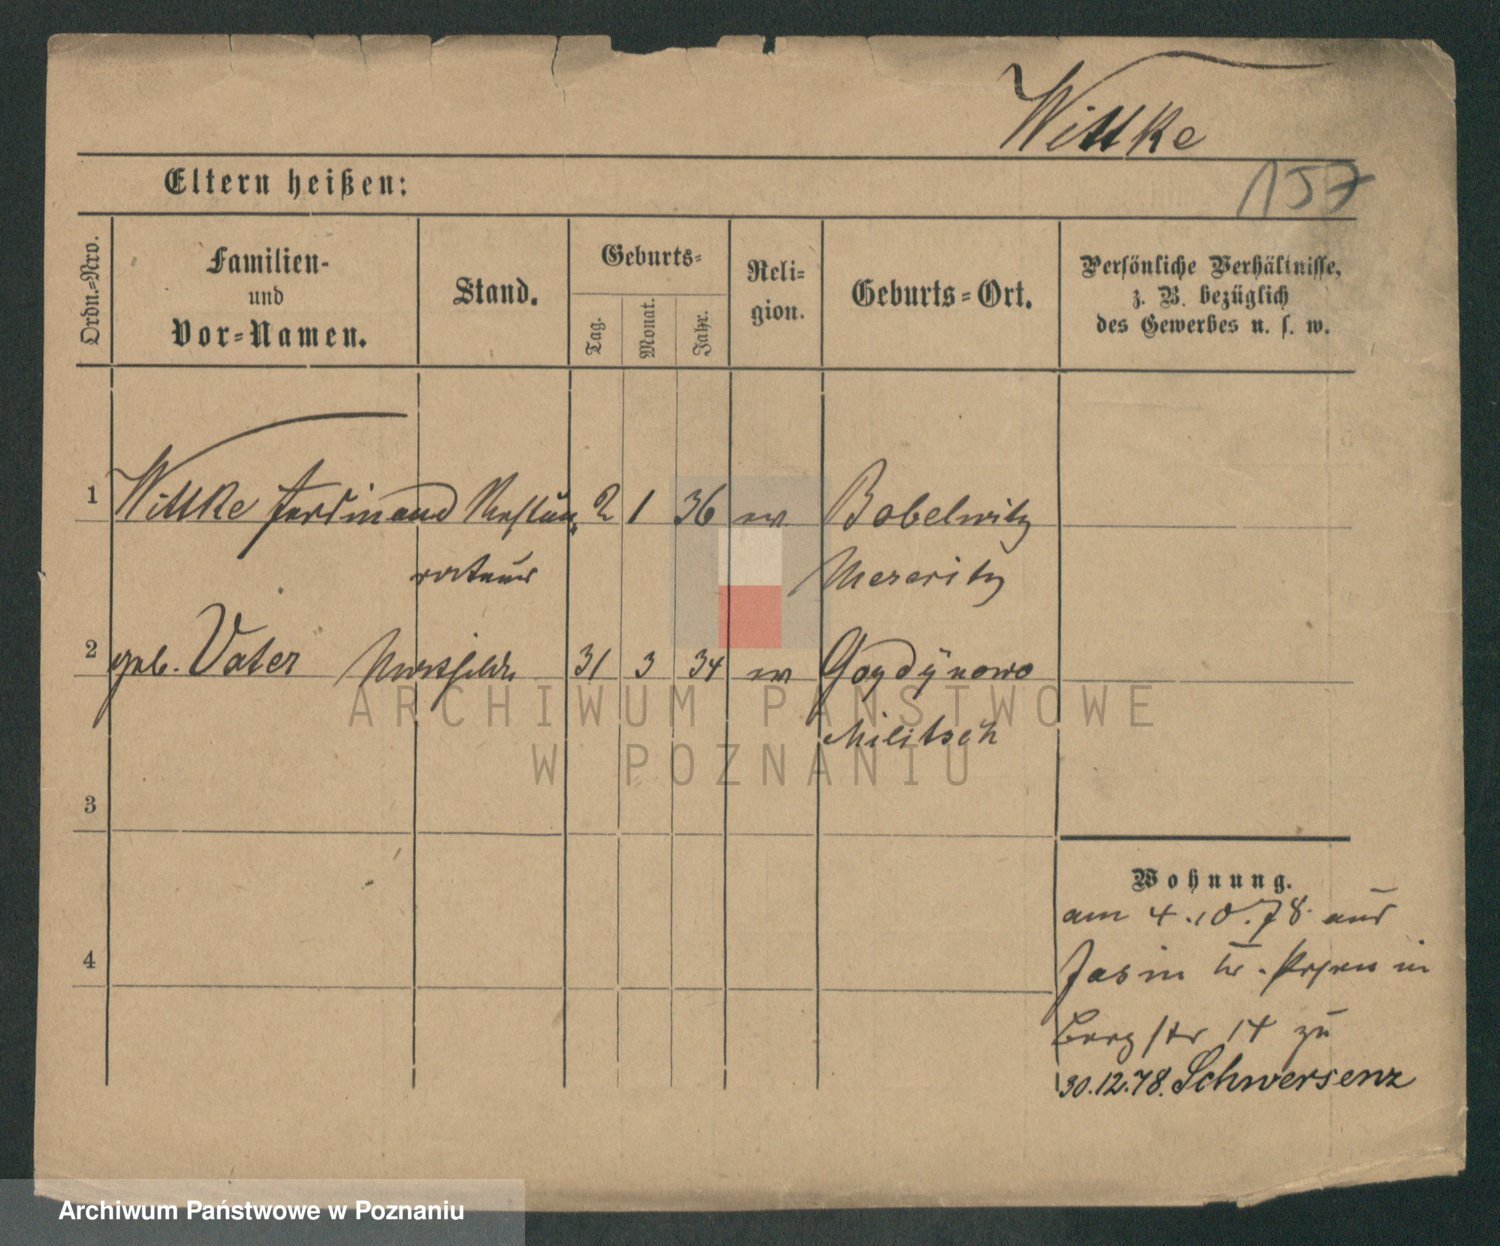 Wittke
157
Eltern heißen:
Ordn.-Nro.
Familien-
und
Vor-Namen.
Stand.
Geburts-
Tag.
Monat.
Jahr.
Reli-
gion.
Geburts-Ort.
Persönliche Verhältnisse,
z. B. bezüglich
des Gewerbes u. s. w.
1 Wittke Ferdinand Restau- 2 1 36 ev Bobelwitz
rateur Meseritz
2 geb. Vater 31 3 34 ev
Militsch
3
4
Wohnung.
am 4.10.78 aus
Jasin Kr. Posen in
Bergstr 14 zu
30.12.78. Schwersenz
ARCHIWUM PAŃSTWOWE
W POZNANIU
Archiwum Państwowe w Poznaniu